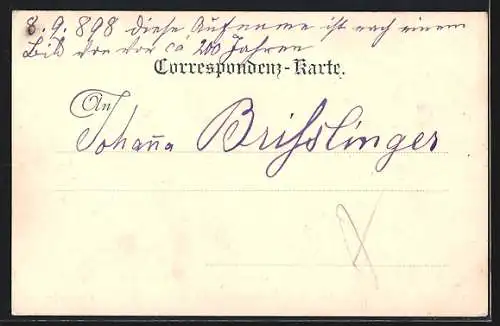 8.9.898 diese Aufname ist nach einem
Bild von vor ca 200 Jahren
Correspondenz-Karte.
An
Johanna Brißlinger